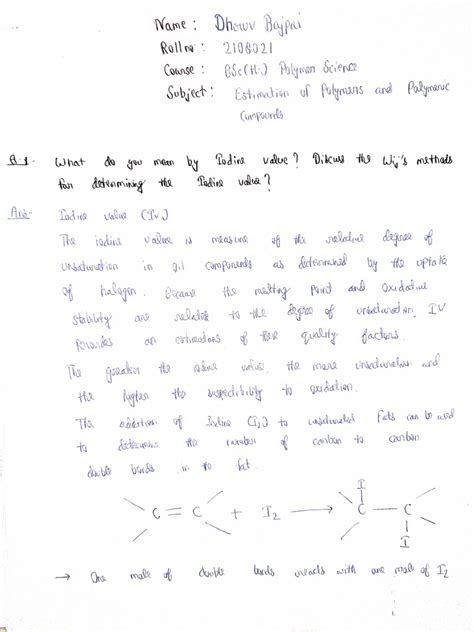 Name : Dhowv Bajpai
Roll no : 2108021
Course : BSc(H.) Polymer Science
Subject : Estimation of Polymers and Polymeric
Compounds
Q.1. What do you mean by Iodine value? Discuss the Wij's methods
for determining the Iodine value?
Ans- Iodine value (Iv)
The iodine value is measure of the relative degree of
unsaturation in oil components as determined by the uptake
of halogen. Because the melting point and oxidative
stability are related to the degree of unsaturation, IV
provides an estimations of these quality factors.
The greater the iodine value, the more unsaturation and
the higher the suspectibility to oxidation.
The addition of Iodine (I2) to unsaturated fats can be used
to determine the number of carbon to carbon
double bonds in the fat.
I
C = C + I2 → C — C
I
→ One mole of double bonds reacts with one mole of I2